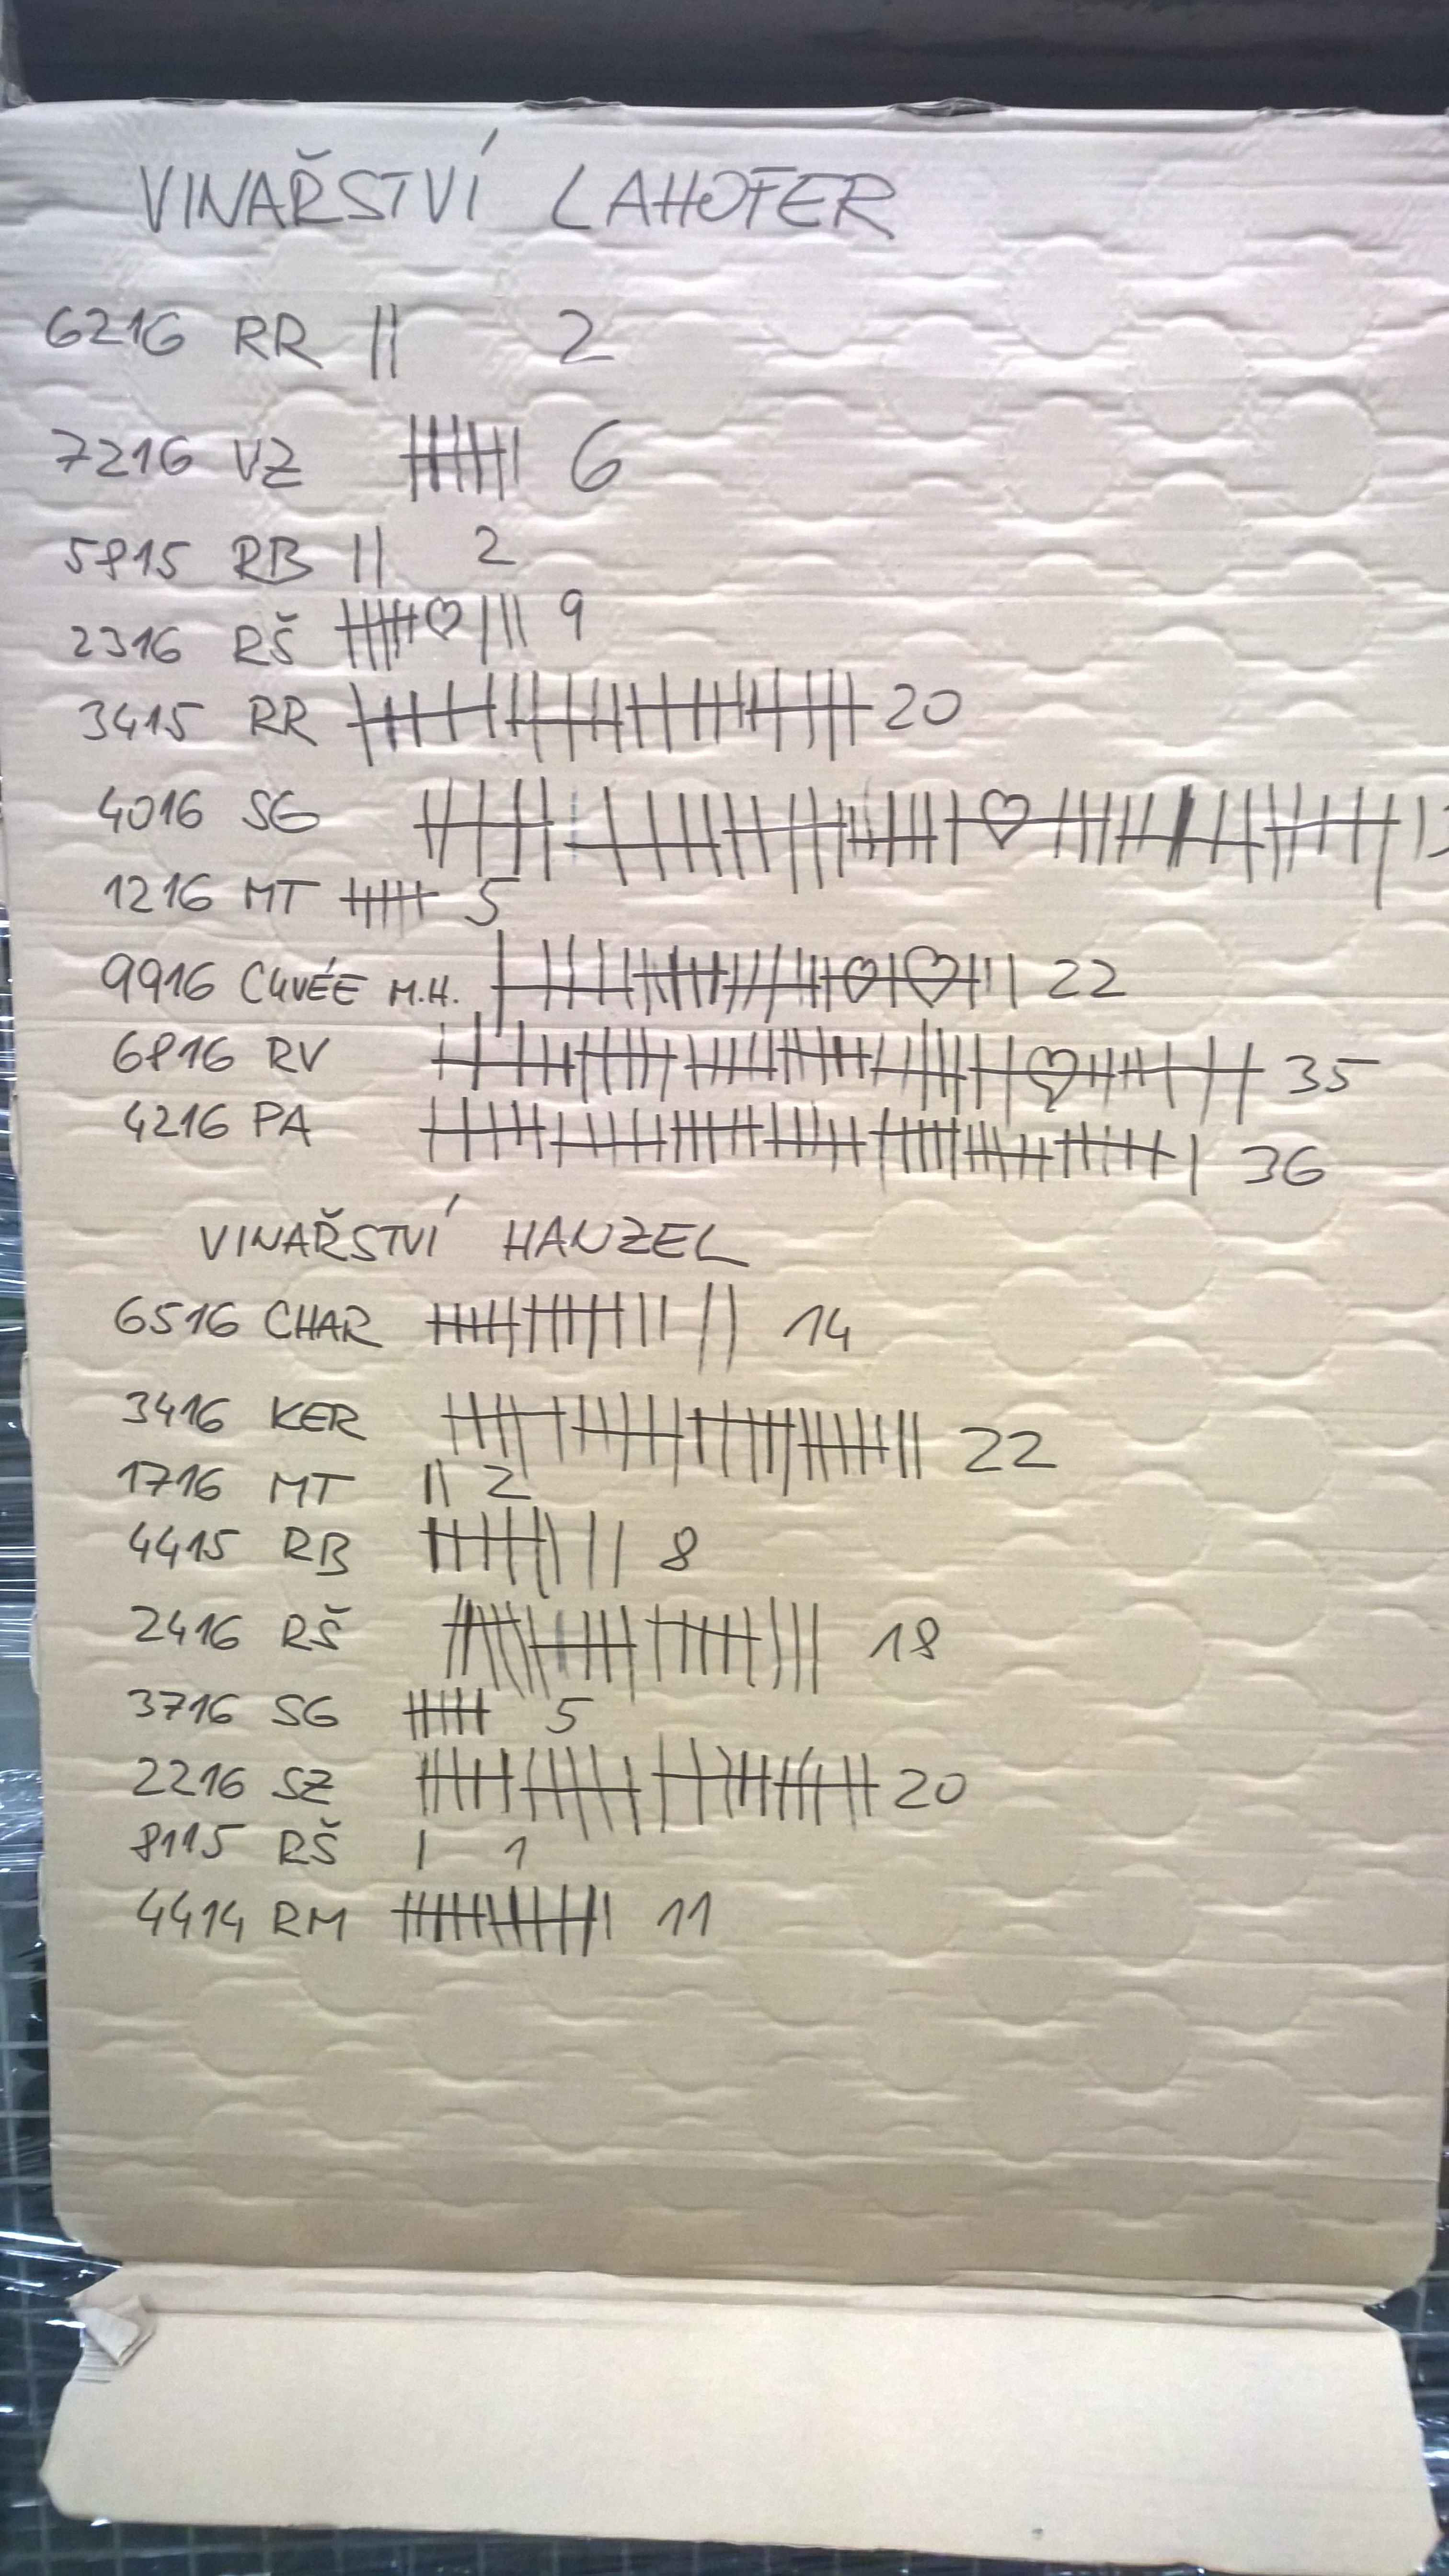 VINAŘSTVÍ LAHOFER
6216 RR || 2
7216 VZ 6
5815 RB || 2
2316 RŠ ♡ ||| 9
3415 RR 20
4016 SG ♡
1216 MT 5
9916 CUVÉE M.H. ♡ ♡ 22
6816 RV ♡ 35
4216 PA 36
VINAŘSTVÍ HANZEL
6516 CHAR 14
3416 KER 22
1716 MT || 2
4415 RB 8
2416 RŠ 18
3716 SG 5
2216 SZ 20
8115 RŠ | 1
4414 RM 11